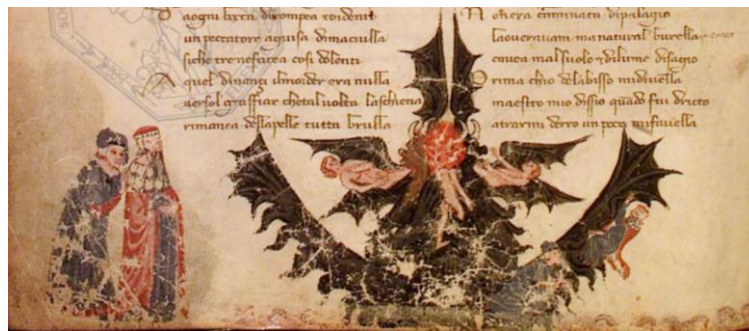 Daogni bocca dirompea coidenti
un peccatore aguisa dimaciulla
siche tre nefacea cosi dolenti
A quel dinanci ilmorder era nulla
verso lgraffiar chetal volta laschiena
rimanea dellapelle tutta brulla
Nonera caminata dipalagio
laoveravam manatural burella
cavea malsuolo & dilume disagio
Prima chio delabisso midivella
maestro mio dissio quādo fui dricto
atrarmi derro un poco mifavella